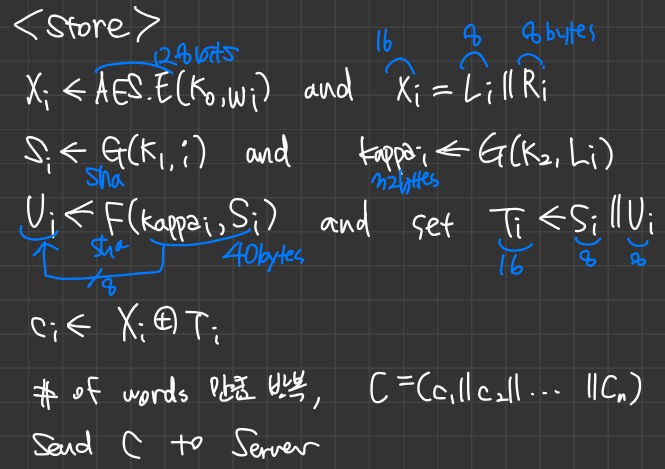 <Store>
128bits 16 8 8bytes
Xᵢ ← AES.E(K₀,wᵢ) and Xᵢ = Lᵢ || Rᵢ
Sᵢ ← G(K₁,i) and kappaᵢ ← G(K₂,Lᵢ)
sha 32bytes
Uᵢ ← F(kappaᵢ,Sᵢ) and set Tᵢ ← Sᵢ || Uᵢ
sha 40bytes 16 8 8
8
cᵢ ← Xᵢ ⊕ Tᵢ
# of words 만큼 반복, C=(c₁||c₂|| ... ||Cₙ)
Send C to Server